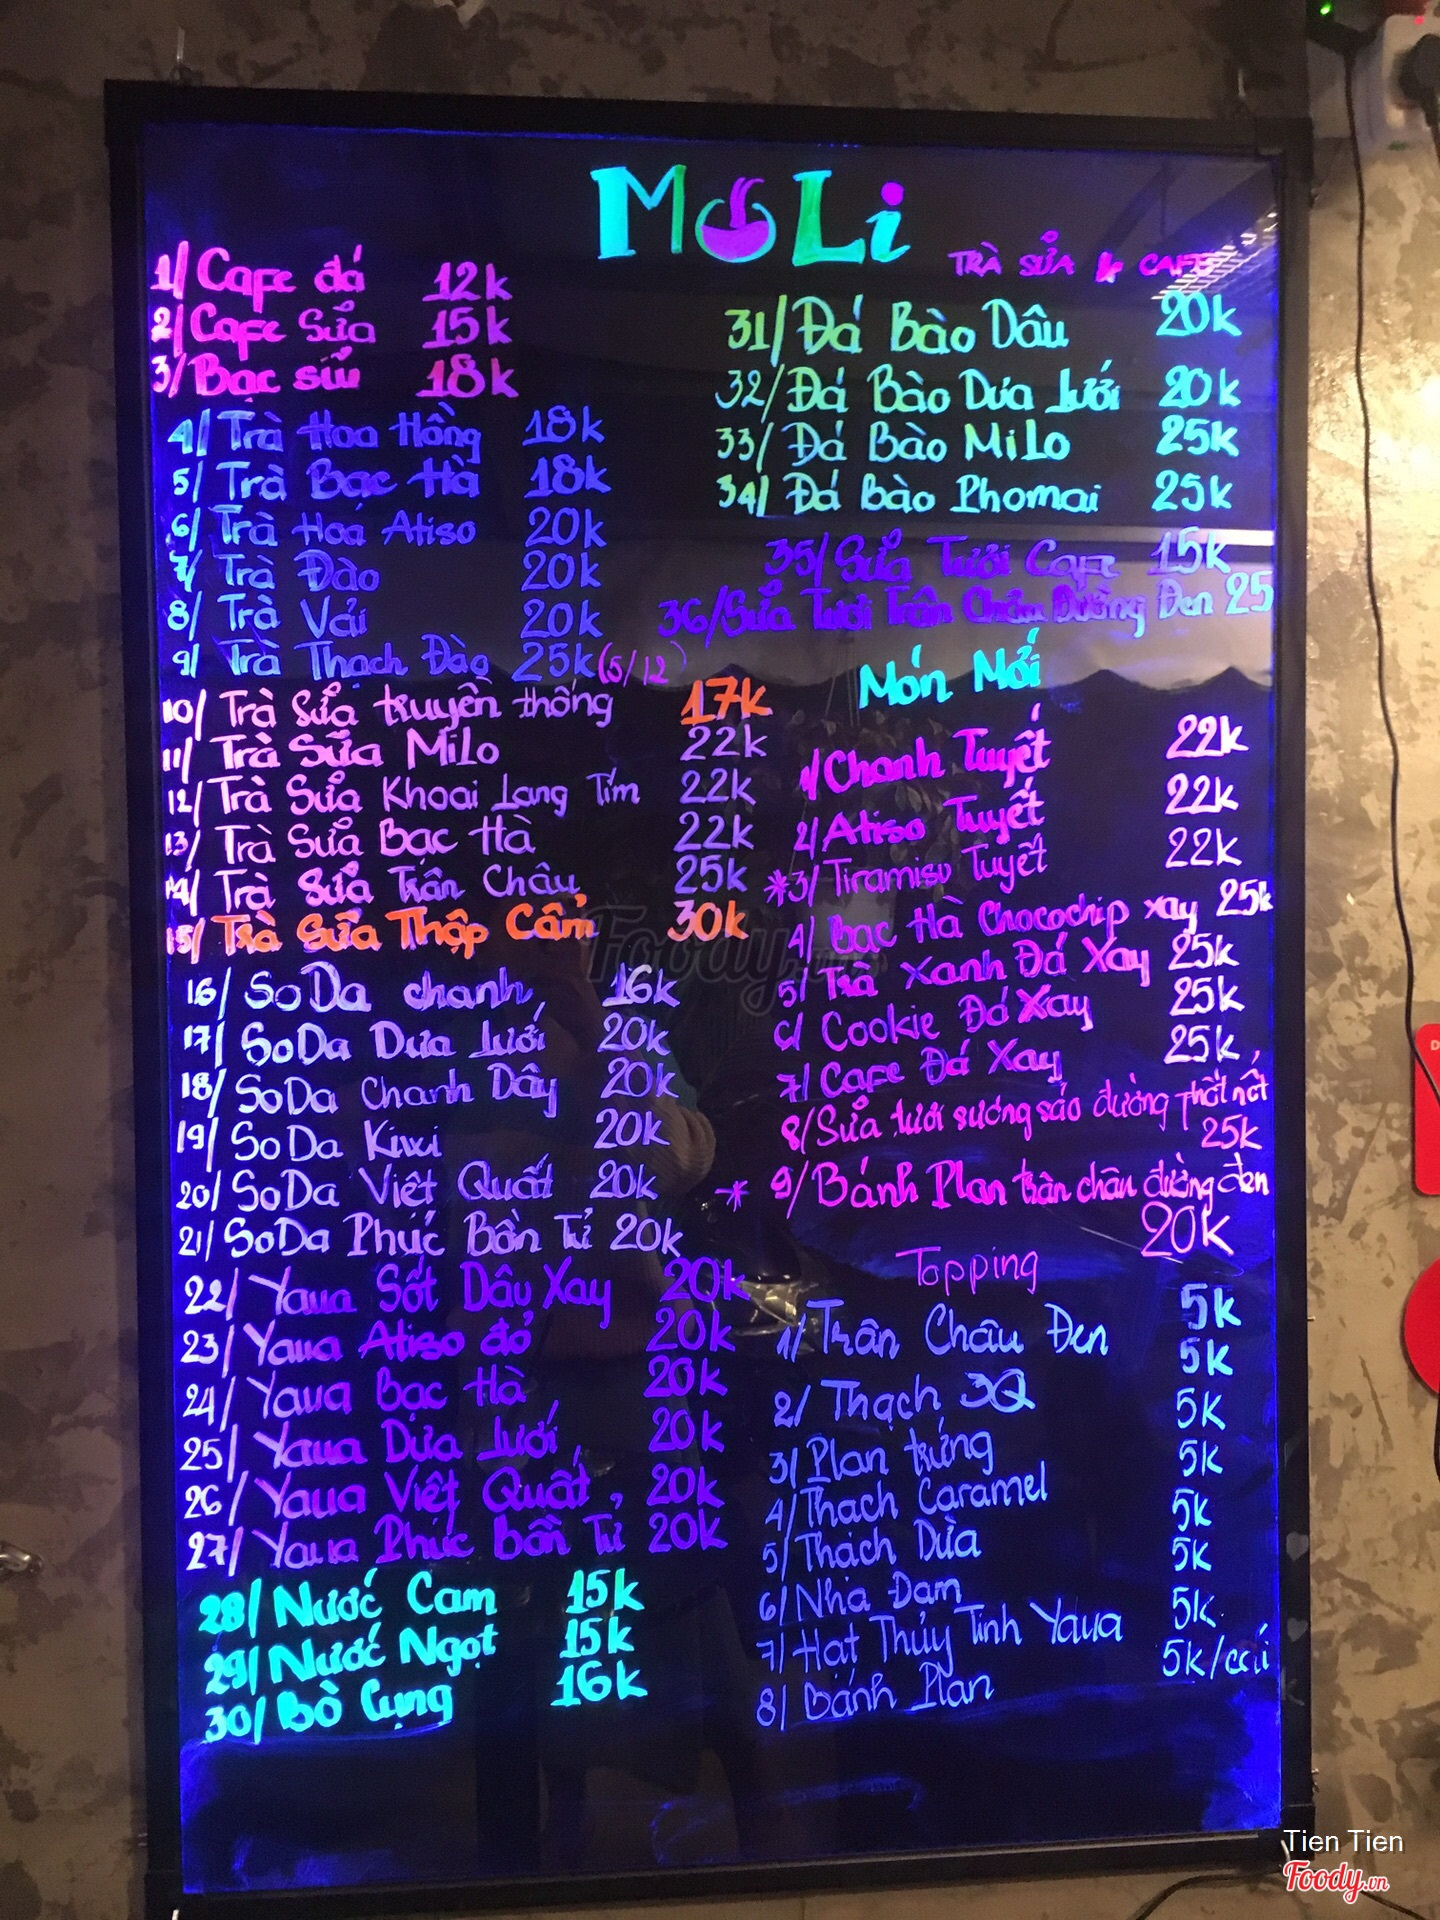 MoLi
TRÀ SỬA & CAFE
1/ Cafe đá 12k
2/ Cafe Sữa 15k
3/ Bạc sỉu 18k
4/ Trà Hoa Hồng 18k
5/ Trà Bạc Hà 18k
6/ Trà Hoa Atiso 20k
7/ Trà Đào 20k
8/ Trà Vải 20k
9/ Trà Thạch Đào 25k (5/12)
10/ Trà Sữa truyền thống 17k
11/ Trà Sữa MiLo 22k
12/ Trà Sữa Khoai Lang Tím 22k
13/ Trà Sữa Bạc Hà 22k
14/ Trà Sữa Trân Châu 25k
15/ Trà Sữa Thập Cẩm 30k
16/ SoDa chanh 16k
17/ SoDa Dưa Lưới 20k
18/ SoDa Chanh Dây 20k
19/ SoDa Kiwi 20k
20/ SoDa Việt Quất 20k
21/ SoDa Phúc Bồn Tử 20k
22/ Yaua Sốt Dâu Xay 20k
23/ Yaua Atiso đỏ 20k
24/ Yaua Bạc Hà 20k
25/ Yaua Dưa Lưới 20k
26/ Yaua Việt Quất 20k
27/ Yaua Phúc Bồn Tử 20k
28/ Nước Cam 15k
29/ Nước Ngọt 15k
30/ Bò Cụng 16k
31/ Đá Bào Dâu 20k
32/ Đá Bào Dưa Lưới 20k
33/ Đá Bào MiLo 25k
34/ Đá Bào Phomai 25k
35/ Sữa Tươi Cafe 15k
36/ Sữa Tươi Trân Châu Đường Đen 25
Món Mới
1/ Chanh Tuyết 22k
2/ Atiso Tuyết 22k
*3/ Tiramisu Tuyết 22k
4/ Bạc Hà Chocochip xay 25k
5/ Trà Xanh Đá Xay 25k
6/ Cookie Đá Xay 25k
7/ Cafe Đá Xay 25k
8/ Sữa tươi sương sáo đường thốt nốt
25k
* 9/ Bánh Plan trân châu đường đen
20k
Topping
1/ Trân Châu Đen 5k
2/ Thạch 3Q 5k
3/ Plan trứng 5k
4/ Thạch Caramel 5k
5/ Thạch Dừa 5k
6/ Nha Đam 5k
7/ Hạt Thủy Tinh Yaua 5k
8/ Bánh Plan 5k/cái
Foody.vn
Tien Tien
Foody.vn